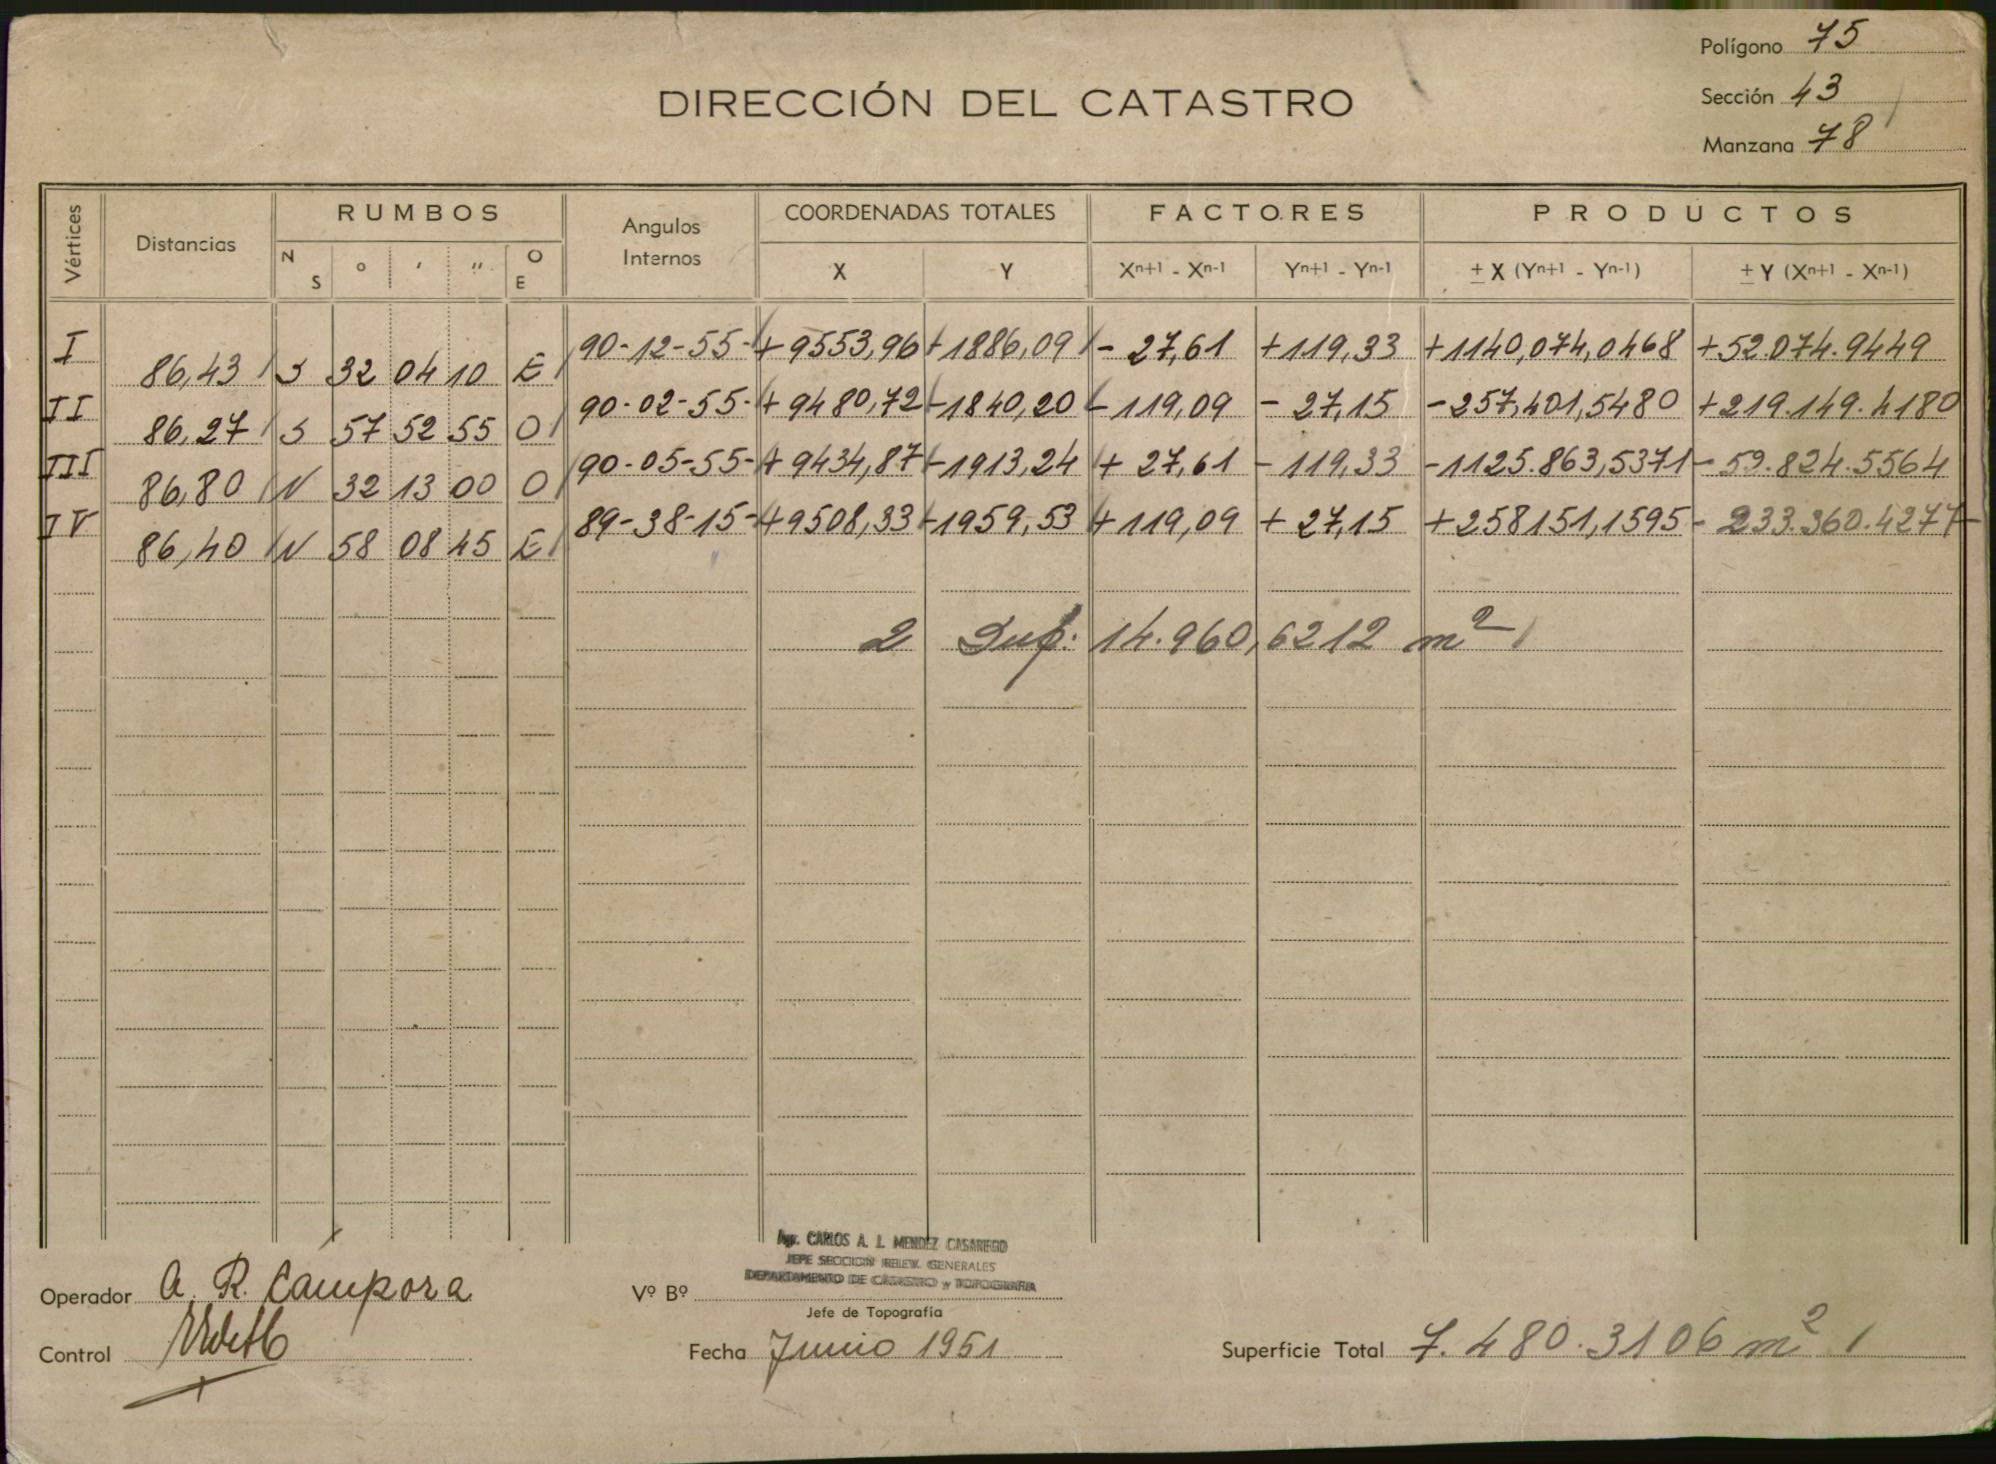 Polígono 75
DIRECCIÓN DEL CATASTRO
Sección 43
Manzana 78
Vértices Distancias RUMBOS Angulos Internos COORDENADAS TOTALES FACTORES PRODUCTOS
N S ° ' " O E X Y Xn+1 - Xn-1 Yn+1 - Yn-1 ± X (Yn+1 - Yn-1) ± Y (Xn+1 - Xn-1)
I 90-12-55- +9553,96 -1886,09 - 27,61 +119,33 +1140,074,0468 +52.074.9449
86,43 S 32 04 10 E
II 90-02-55- +9480,72 -1840,20 -119,09 - 27,15 -257,401,5480 +219.149.4180
86,27 S 57 52 55 O
III 90-05-55- +9434,87 -1913,24 + 27,61 -119,33 -1125.863,5371 -59.824.5564
86,80 N 32 13 00 O
IV 89-38-15- +9508,33 -1959,53 +119,09 + 27,15 +258151,1595 -233.360.4277
86,40 N 58 08 45 E
2 Sup: 14.960,6212 m²
Ing. CARLOS A. J. MENDEZ CASARIEGO
JEFE SECCION RELEV. GENERALES
DEPARTAMENTO DE CATASTRO y TOPOGRAFIA
Operador A. R. Cámpora Vº Bº
Jefe de Topografía
Control Fecha Junio 1951 Superficie Total 7.480.3106 m²